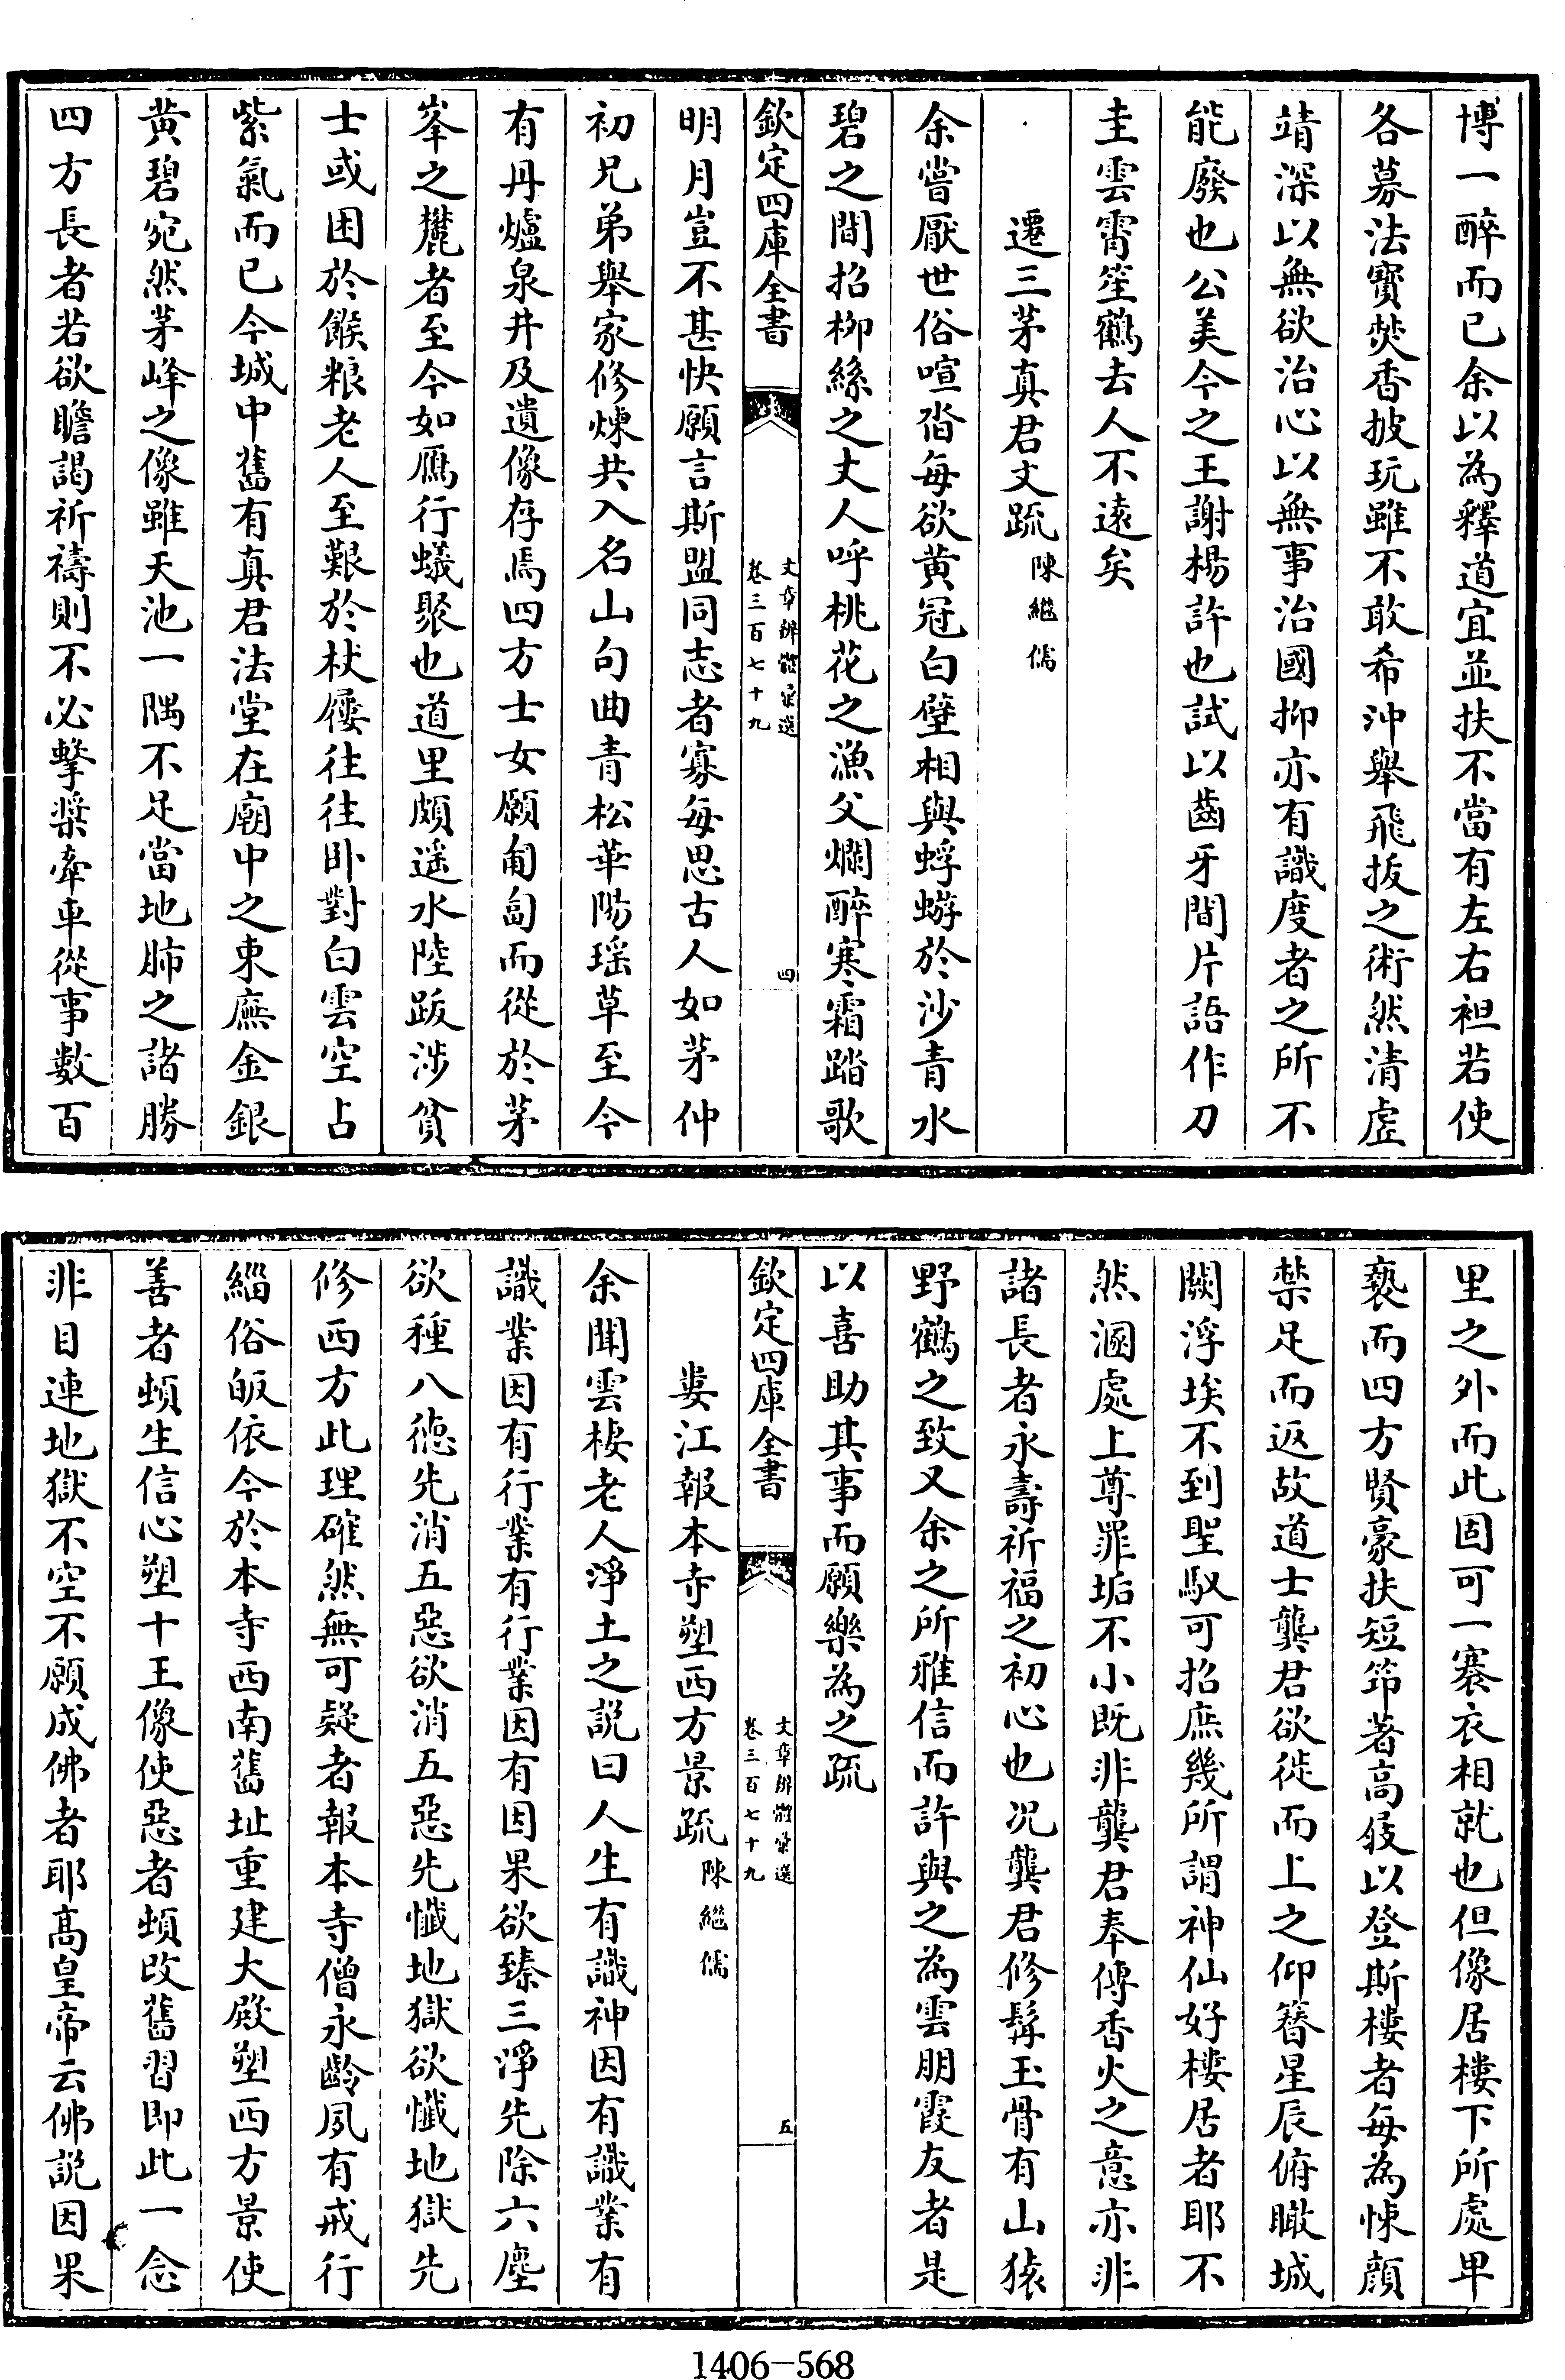 博一醉而已余以為釋道宜並扶不當有左右袒若使
各募法寳焚香披玩雖不敢希沖舉飛拔之術然清虚
靖深以無欲治心以無事治國抑亦有識度者之所不
能廢也公美今之王謝楊許也試以齒牙間片語作刀
圭雲霄笙鶴去人不遠矣
遷三茅真君文疏陳繼儒
余嘗厭世俗喧沓每欲黄冠白㡩相與蜉蝣於沙青水
碧之間招栁絲之丈人呼桃花之漁父爛醉寒霜踏歌
欽定四庫全書
文章辨體彚選
卷三百七十九
四
明月豈不甚快願言斯盟同志者寡每思古人如茅仲
初兄弟舉家修煉共入名山句曲青松華陽瑶草至今
有丹爐泉井及遺像存焉四方士女願匍匐而從於茅
峯之麓者至今如鴈行蟻聚也道里頗遥水陸跋涉貧
士或困於餱粮老人至艱於杖屨往往卧對白雲空占
紫氣而已今城中舊有真君法堂在廟中之東廡金銀
黄碧宛然茅峰之像雖天池一隅不足當地肺之諸勝
四方長者若欲瞻謁祈禱則不必擊槳牽車從事數百
里之外而此固可一褰衣相就也但像居樓下所處卑
褻而四方賢豪扶短筇著高屐以登斯樓者每為悚顔
禁足而返故道士龔君欲徙而上之仰簪星辰俯瞰城
闕浮埃不到聖馭可招庶幾所謂神仙好樓居者耶不
然溷處上尊罪垢不小既非龔君奉傅香火之意亦非
諸長者永壽祈福之初心也况龔君修髯玉骨有山猿
野鶴之致又余之所雅信而許與之為雲朋霞友者是
以喜助其事而願樂為之疏
欽定四庫全書
文章辨體彚選
卷三百七十九
五
婁江報本寺塑西方景疏陳繼儒
余聞雲棲老人淨土之説曰人生有識神因有識業有
識業因有行業有行業因有因果欲臻三淨先除六塵
欲種八徳先消五惡欲消五惡先懺地獄欲懺地獄先
修西方此理確然無可疑者報本寺僧永齡夙有戒行
緇俗皈依今於本寺西南舊址重建大殿塑西方景使
善者頓生信心塑十王像使惡者頓改舊習即此一念
非目連地獄不空不願成佛者耶髙皇帝云佛説因果
1406-568